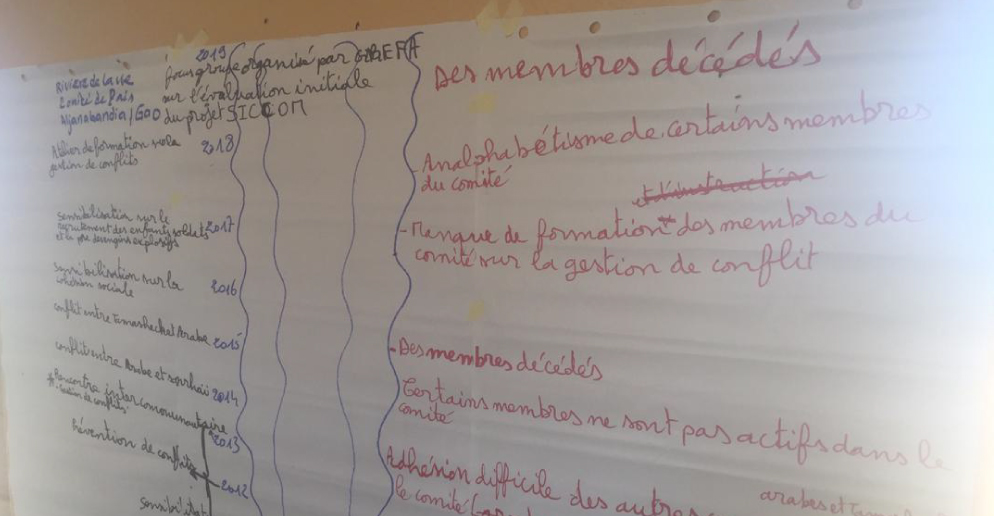 Rivière de la vie
Comité de Paix
2019
focus groupe organisé par GREFFA
sur l'évaluation initiale
du projet SICCOM
Atelier de formation sur la
gestion de conflits
2018
Sensibilisation sur le
recrutement des enfants soldats
2017
et la engins explosifs
Sensibilisation sur la
cohésion sociale
2016
conflit entre Tamasheck et Arabe 2015
conflit entre Arabe et sonrhaï 2014
Rencontre intercommunautaire
gestion de conflits
2013
Prévention de conflits
2012
Des membres décédés
-Analphabétisme de certains membres
du comité
et l'instruction
-Manque de formation des membres du
comité sur la gestion de conflit
-Des membres décédés
Certains membres ne sont pas actifs dans le
comité
Adhésion difficile des autres
arabes et
le comité